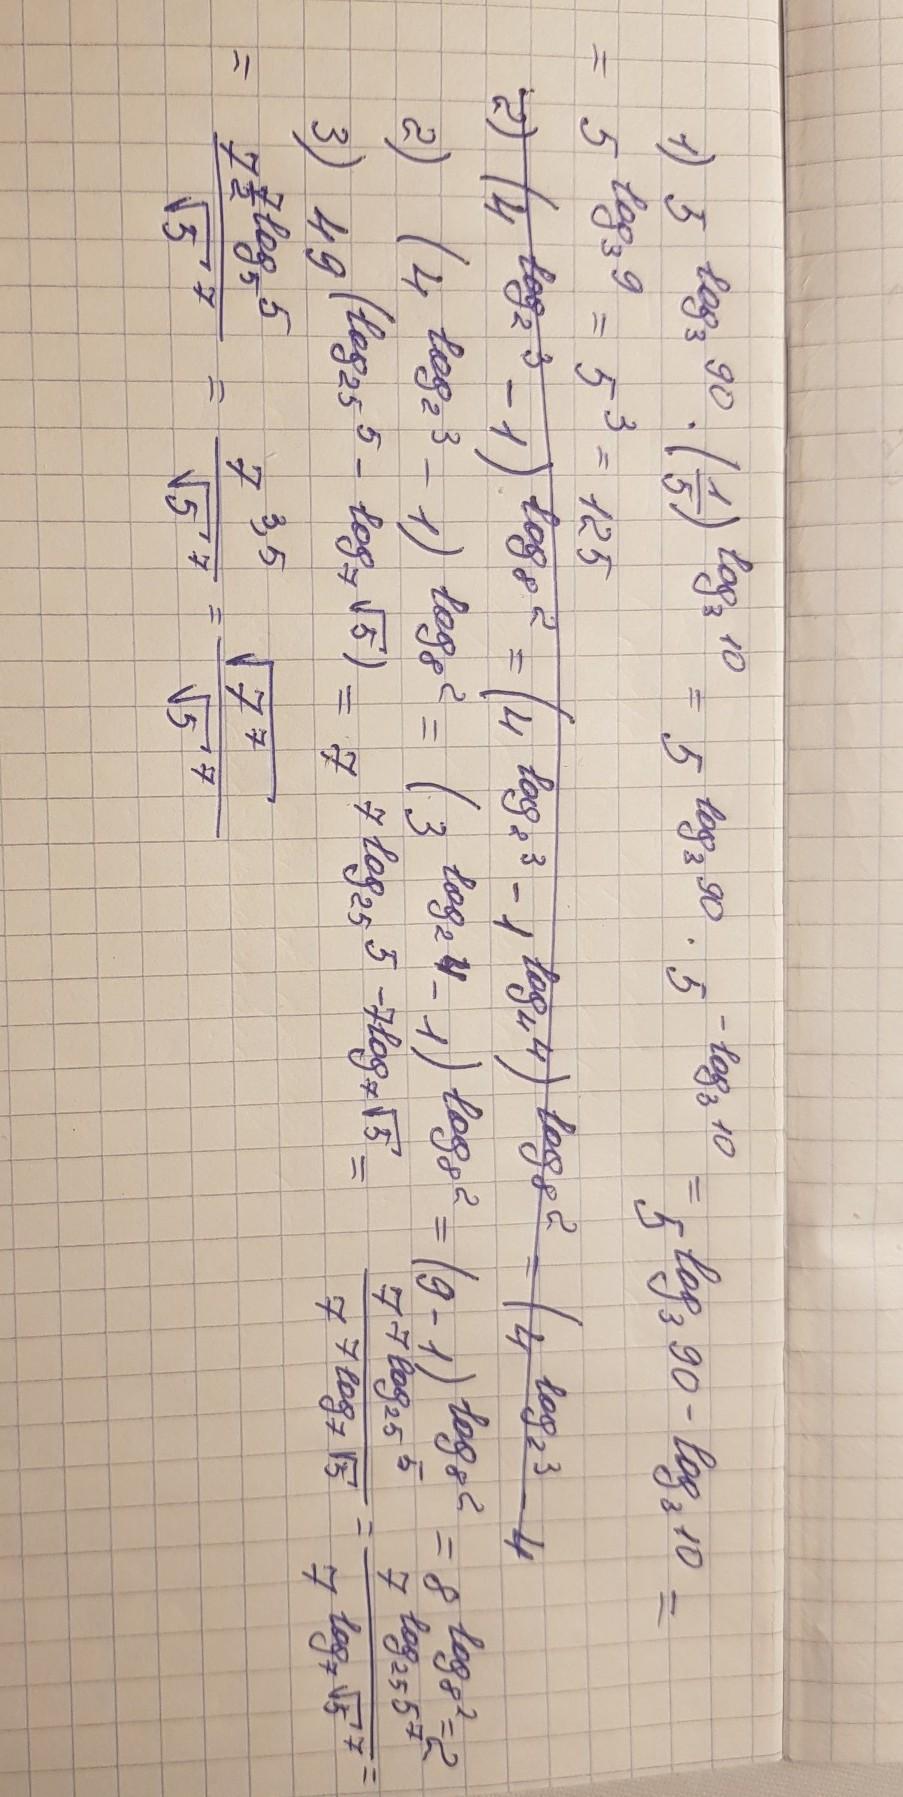 1) 5^{log₃ 90} · (1/5)^{log₃ 10} = 5^{log₃ 90} · 5^{-log₃ 10} = 5^{log₃ 90 - log₃ 10} =
= 5^{log₃ 9} = 5^3 = 125
2) (4^{log₂ 3} - 1)^{log₈ 2} = (4^{log₂ 3} - 1^{log₄ 4})^{log₈ 2} = (4^{log₂ 3} - 4
2) (4^{log₂ 3} - 1)^{log₈ 2} = (3^{log₂ 4} - 1)^{log₈ 2} = (9 - 1)^{log₈ 2} = 8^{log₈ 2} = 2
3) 49^{(log₂₅ 5 - log₇ √5)} = 7^{7 log₂₅ 5 - 7 log₇ √5} = 7^{7 log₂₅ 5} / 7^{7 log₇ √5} = 7^{log₂₅ 5^7} / 7^{log₇ √5^7} =
= 7^{7/2 log₅ 5} / √5^7 = 7^{3,5} / √5^7 = √7^7 / √5^7